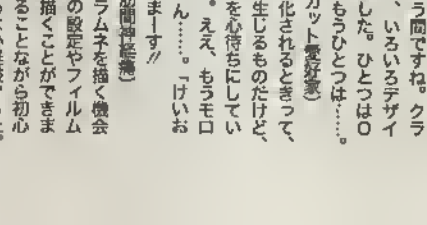 う間ですね。クラ
、いろいろデザイ
した。ひとつはO
もうひとつは……。
カット愛好家）
化されるときって、
生じるものだけど、
を心待ちにしてい
。ええ、もうモロ
ん……。「けいお
まーす!!
肋間神経痛）
ラムネを描く機会
の設定やフィルム
描くことができま
ることながら初心